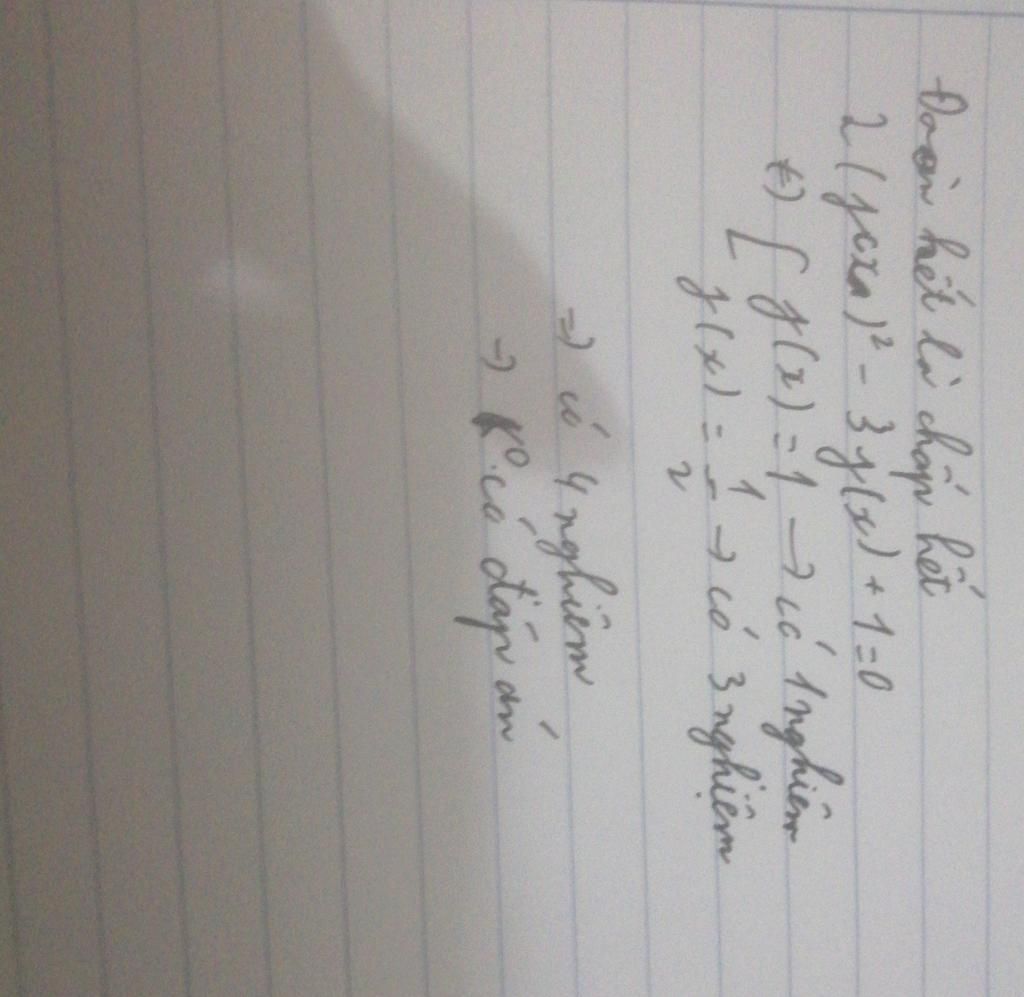 Đoàn kết là chấp hết
2(y(x))² - 3y(x) + 1 = 0
⇔ [ y(x) = 1 → có 1 nghiệm
[ y(x) = 1/2 → có 3 nghiệm
⇒ có 4 nghiệm
→ K° có đáp án